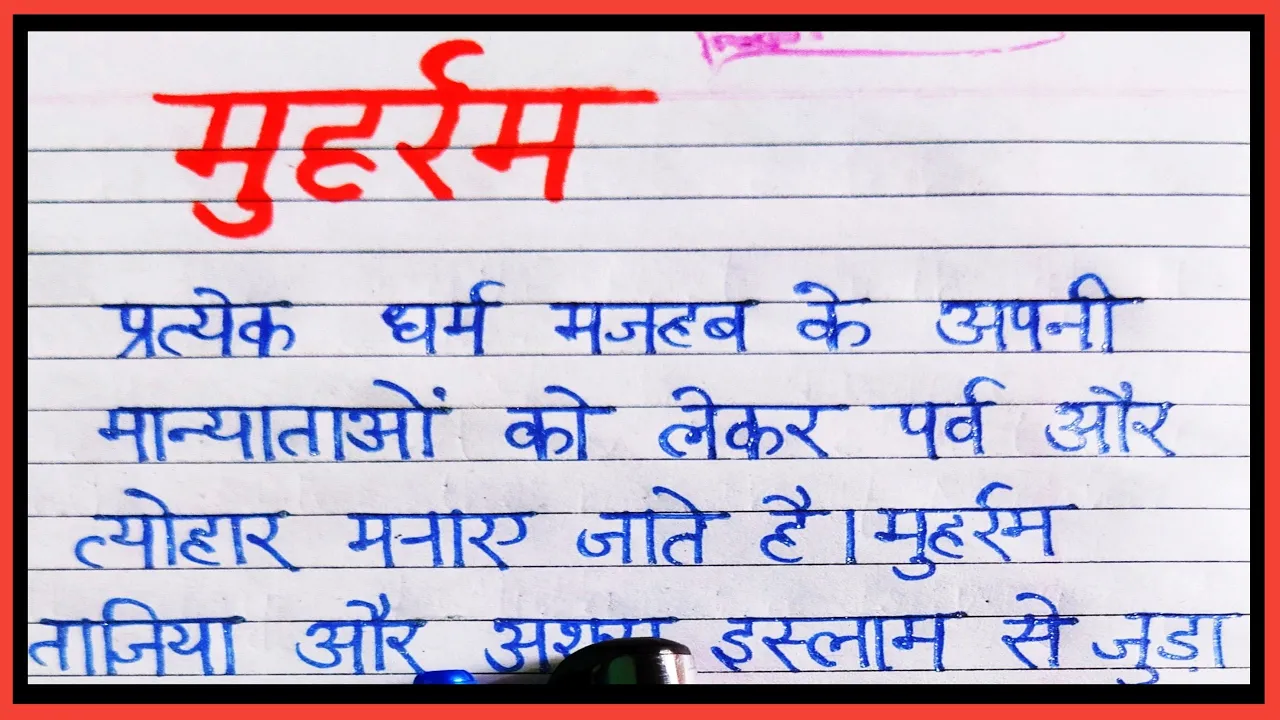 मुहर्रम
प्रत्येक धर्म मजहब के अपनी
मान्याताओं को लेकर पर्व और
त्योहार मनाए जाते है। मुहर्रम
ताजिया और इस्लाम से जुड़ा